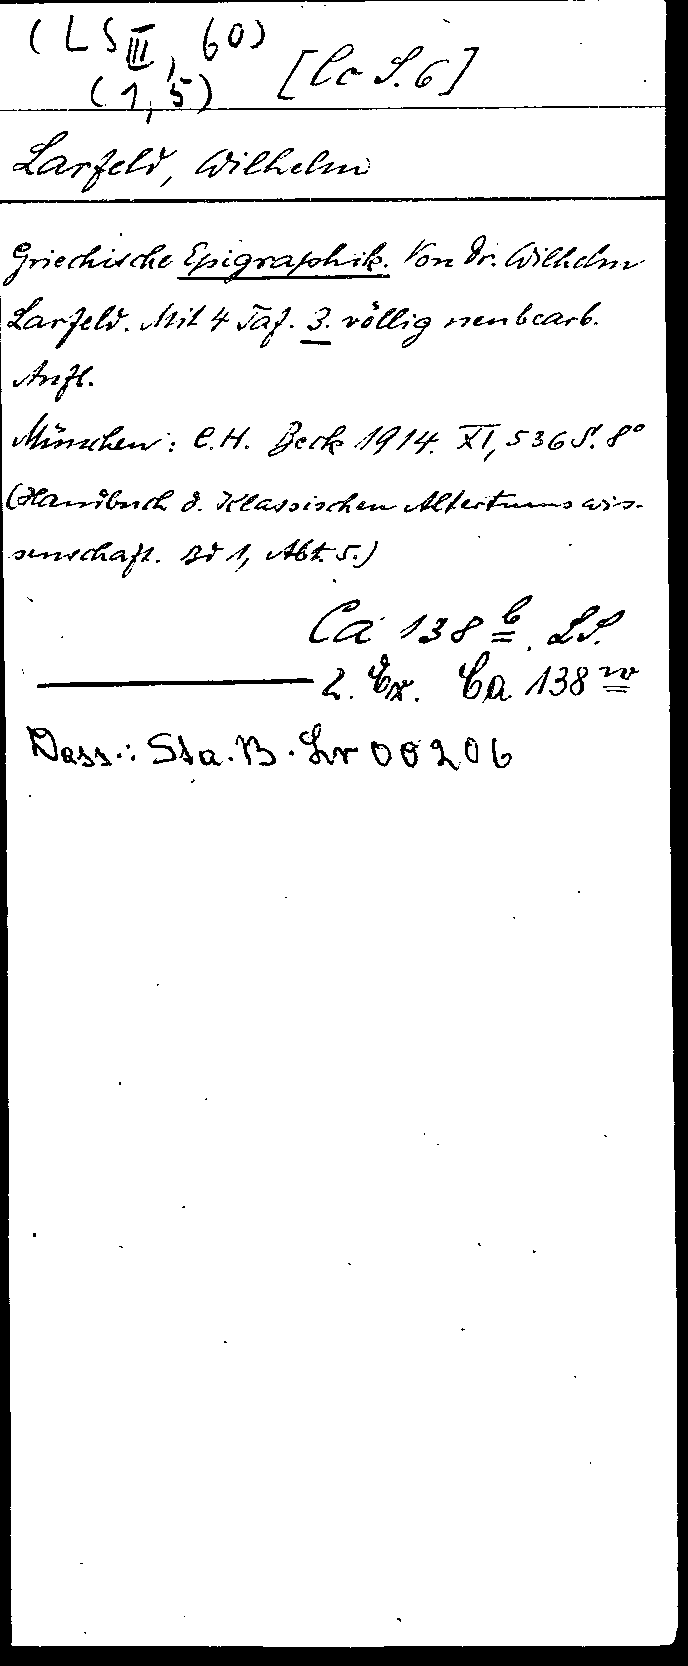 (LS III, 60) [Cc S. 6]
(1, 5)
Larfeld, Wilhelm
Griechische Epigraphik. Von Dr. Wilhelm
Larfeld. Mit 4 Taf. 3. völlig neubearb.
Aufl.
München: C.H. Beck 1914. XI, 536 S. 8°
(Handbuch d. Klassischen Altertumswis-
senschaft. Bd 1, Abt. 5.)
Ca 138 b. LS.
2. Ex. Ca 138 w
Dass.: Sta. B. Lr 00206